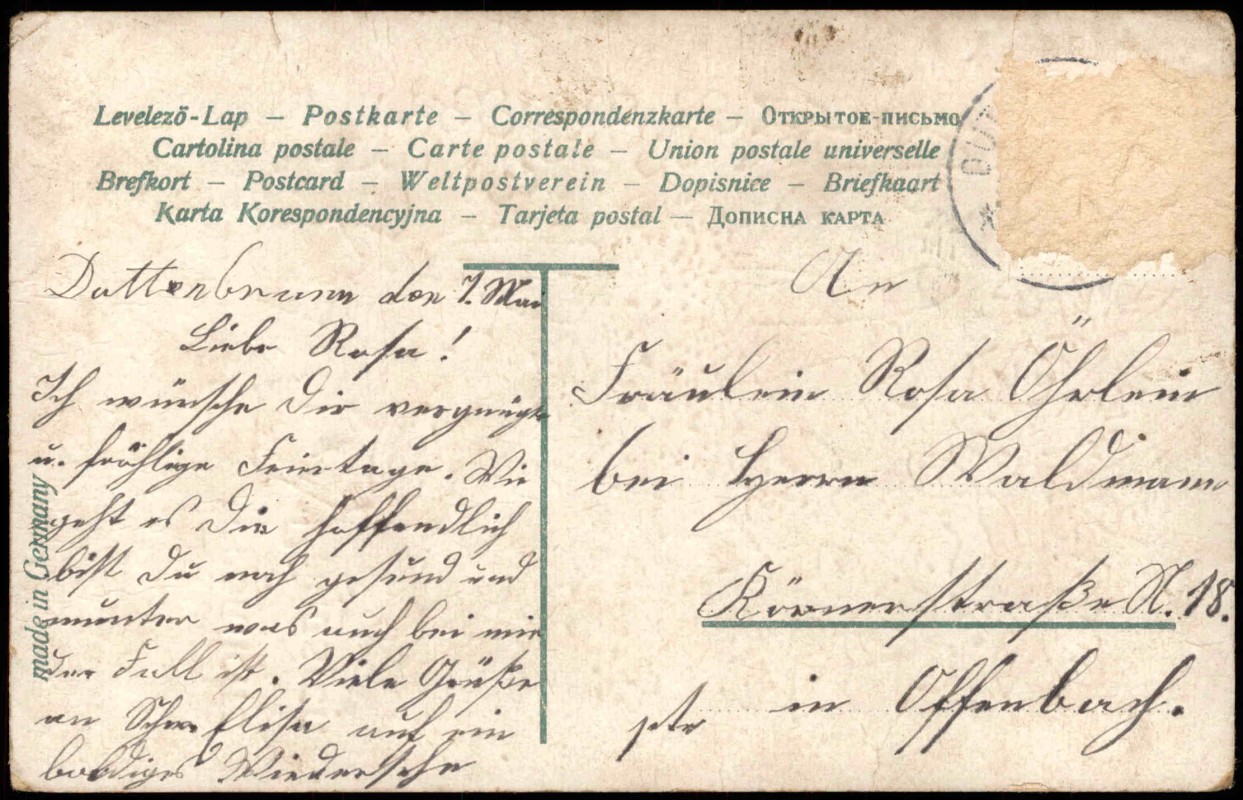 Levelező-Lap – Postkarte – Correspondenzkarte – Открытое-письмо
Cartolina postale – Carte postale – Union postale universelle
Brefkort – Postcard – Weltpostverein – Dopisnice – Briefkaart
Karta Korespondencyjna – Tarjeta postal – Дописна карта
Duttenbrunn den 7. Mai
Liebe Rosa!
Ich wünsche Dir vergnügte
u. fröhlige Feiertage. Wie
geht es Dir hoffendlich
bist Du noch gesund und
munter was auch bei mir
der Fall ist. Viele Grüße
an Schw. Elisa auf ein
baldiges Wiedersehn
made in Germany
An
Fräulein Rosa Öhrlein
bei Herrn Waldmann
Körnerstraße N. 18.
in Offenbach.
DUT